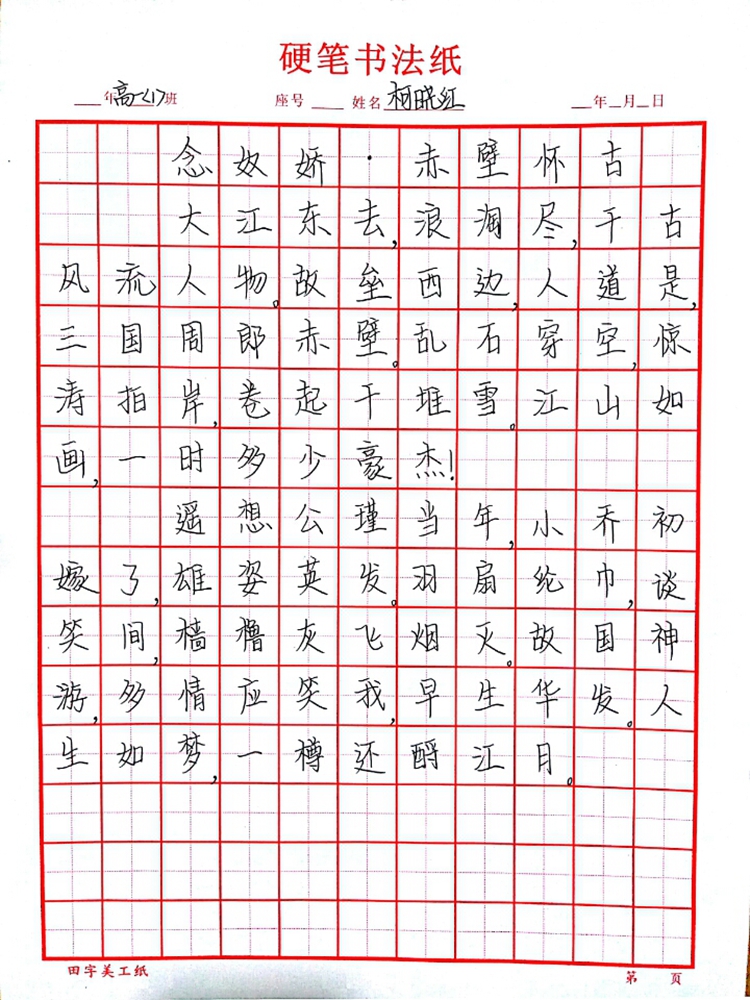 硬笔书法纸
年高一(1)班 座号 姓名柯晓红 年 月 日
念奴娇·赤壁怀古
大江东去,浪淘尽,千古
风流人物。故垒西边,人道是,
三国周郎赤壁。乱石穿空,惊
涛拍岸,卷起千堆雪。江山如
画,一时多少豪杰!
遥想公瑾当年,小乔初
嫁了,雄姿英发。羽扇纶巾,谈
笑间,樯橹灰飞烟灭。故国神
游,多情应笑我,早生华发。人
生如梦,一樽还酹江月。
田字美工纸 第 页